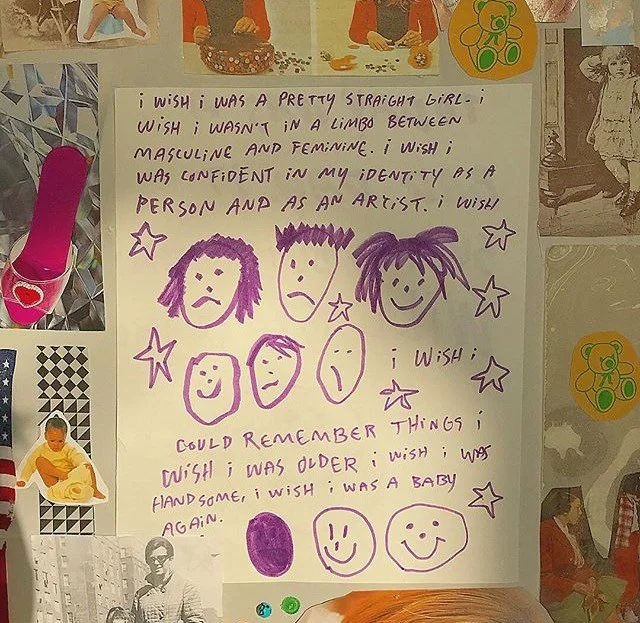 i WISH i WAS A PRETTY STRAIGHT GiRL. i
WISH i WASN'T IN A LIMBO BETWEEN
MASCULINE AND FEMININE. i WISH i
WAS CONFIDENT IN MY IDENTITY AS A
PERSON AND AS AN ARTIST. i WISH
i WISH i
COULD REMEMBER THINGS i
WISH i WAS OLDER i WISH i WAS
HANDSOME, i WISH i WAS A BABY
AGAIN.